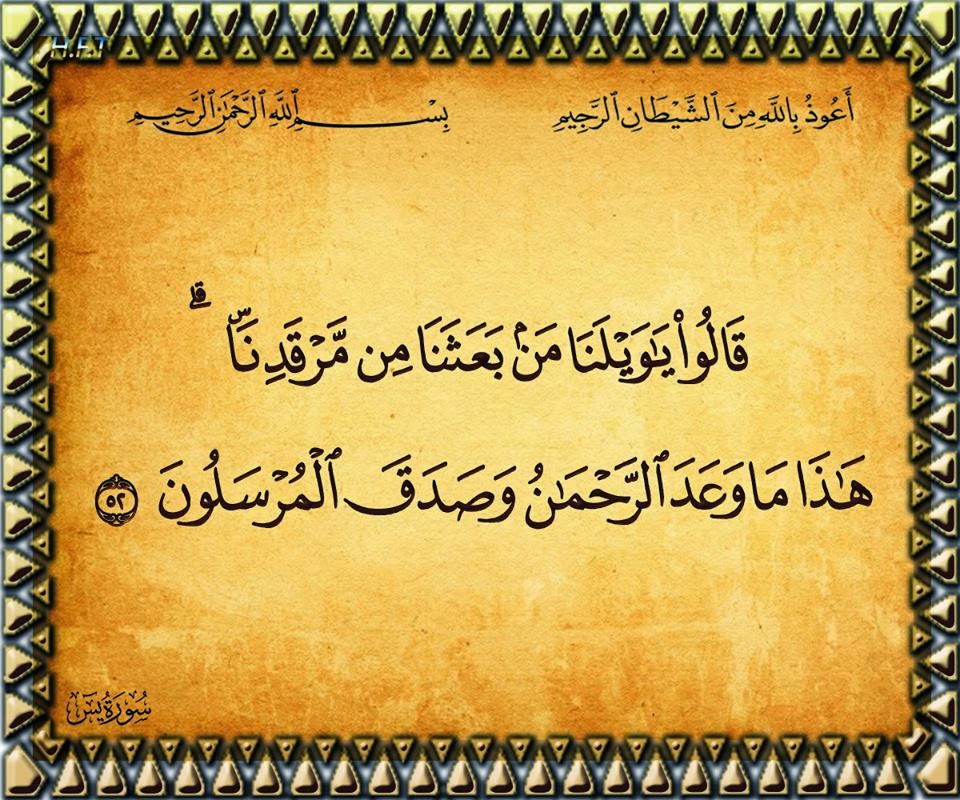 H.F.T
أَعُوذُ بِاللَّهِ مِنَ ٱلشَّيْطَانِ ٱلرَّجِيمِ بِسْمِ ٱللَّهِ ٱلرَّحْمَٰنِ ٱلرَّحِيمِ
قَالُوا۟ يَٰوَيْلَنَا مَنۢ بَعَثَنَا مِن مَّرْقَدِنَا ۜ ۗ
هَٰذَا مَا وَعَدَ ٱلرَّحْمَٰنُ وَصَدَقَ ٱلْمُرْسَلُونَ ٥٢
سُورَةُ يسٓ